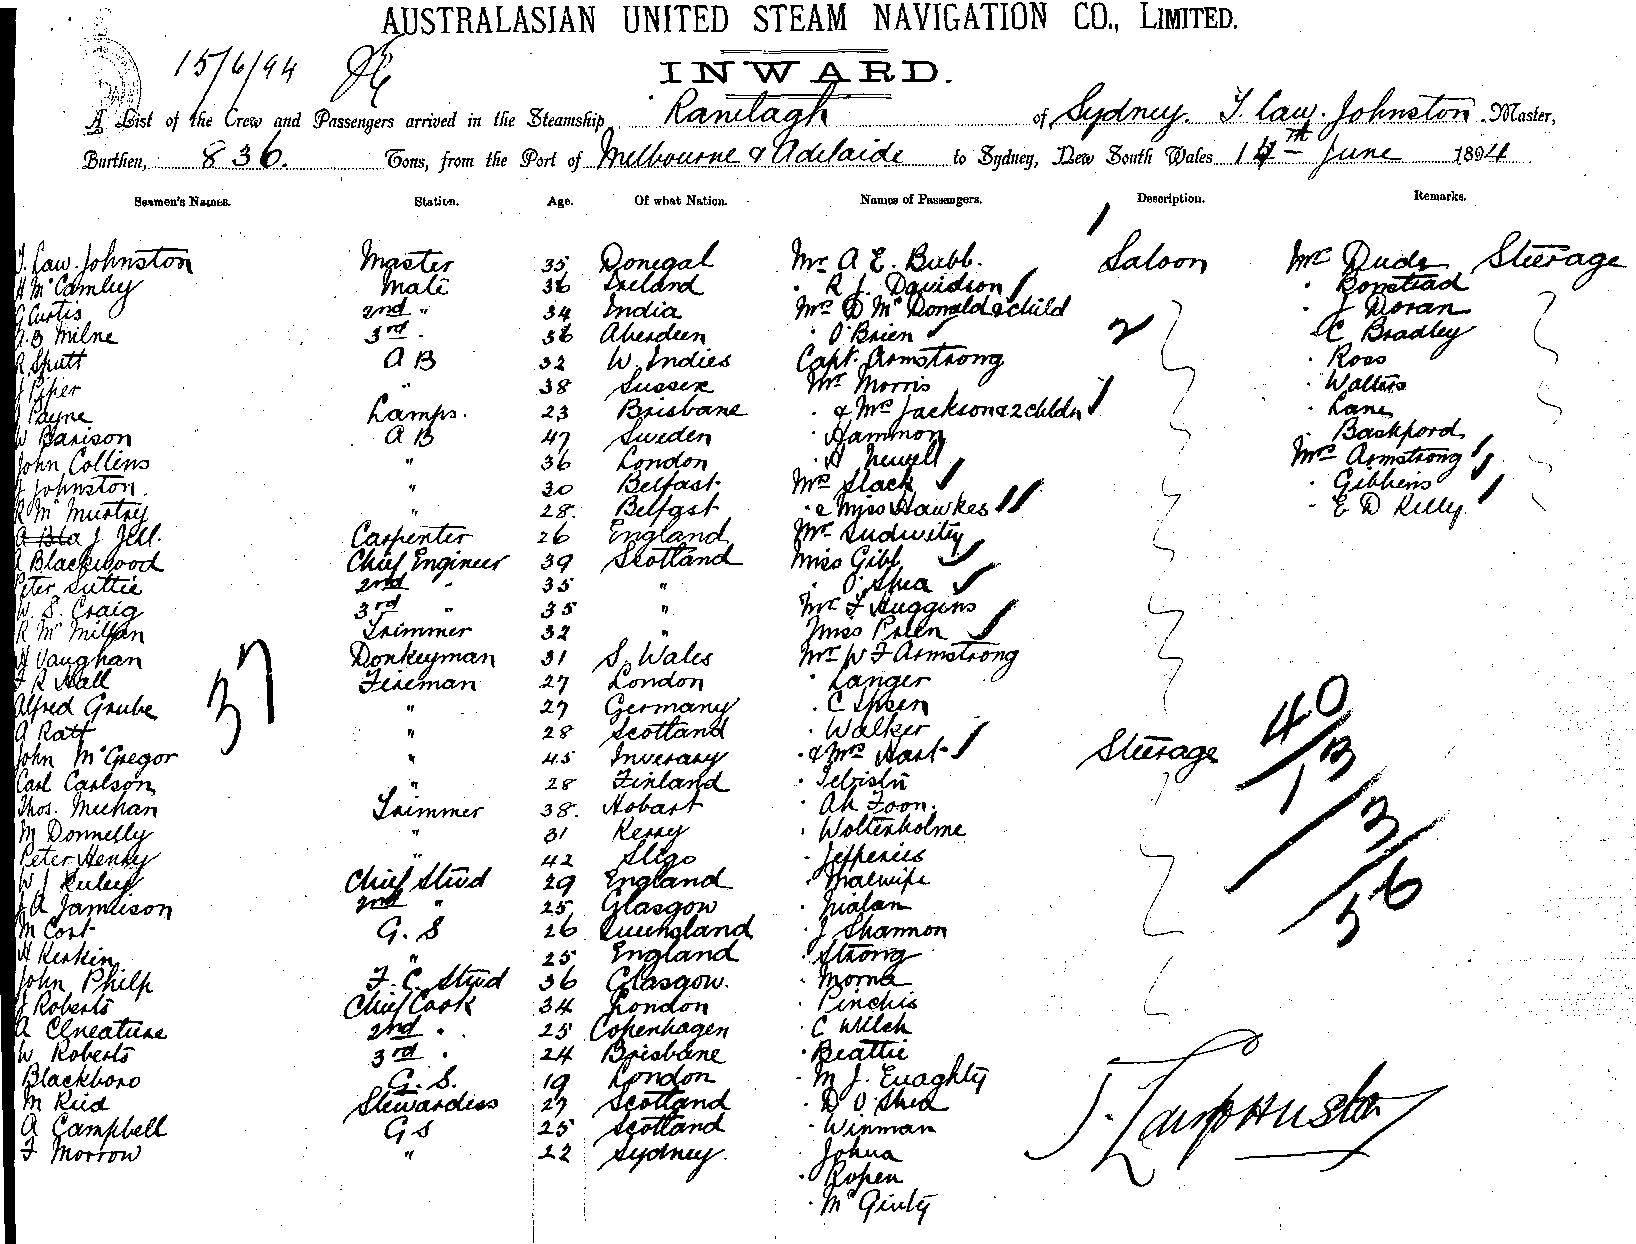 AUSTRALASIAN UNITED STEAM NAVIGATION CO., LIMITED.
15/6/94
INWARD.
A List of the Crew and Passengers arrived in the Steamship Ranelagh of Sydney. T. Law. Johnston Master,
Burthen, 836. Tons, from the Port of Melbourne & Adelaide to Sydney, New South Wales 14th June 1894
Seamen's Names. Station. Age. Of what Nation. Names of Passengers. Description. Remarks.
T. Law. Johnston Master 35 Donegal Mr A E. Bubb. Saloon Mr Dude Steerage
H McCamley Mate 36 Ireland " R J. Davidson " Bonstead
G Curtis 2nd " 34 India Mrs D McDonald & child " J Doran
G. B Milne 3rd " 36 Aberdeen " O'Brien 2 C Bradley
R Sputt A B 32 W. Indies Capt. Armstrong " Ross
J Piper " 38 Sussex Mr Morris " Walters
J Payne Lamps. 23 Brisbane " & Mrs Jackson & 2 chldn " Lane
W Barison A B 47 Sweden " Hammon " Backford
John Collins " 36 London " A Newell Mrs Armstrong
J Johnston " 30 Belfast Mrs Slack " Gibbens
R McMurtry " 28. Belfast " & Miss Hawkes " E D Kelly
J Jell. Carpenter 26 England Mr
A Blackwood Chief Engineer 39 Scotland Miss Gibb
Peter Suttie 2nd " 35 " " O'Shea
W. S. Craig 3rd " 35 " Mr F Huggins
R McMillan Trimmer 32 " Miss Polen
H Vaughan Donkeyman 31 S. Wales Mr W F Armstrong
F R Hall Fireman 27 London " Langer
37
Alfred Grube " 27 Germany " C Speen
40
A Ratt " 28 Scotland " Walker
John McGregor " 45 Inverary " & Mrs Hart Steerage
13
Carl Carlson " 28 Finland
1
Thos. Meehan Trimmer 38. Hobart " Ah Foon.
M Donnelly " 31 Kerry " Woltenholme
3
Peter Henry " 42 Sligo " Jefferies
W J Kuley Chief Stwd 29 England
56
J A Jamieson 2nd " 25 Glasgow " Nialan
M Cost G. S 26 Queensland " J Shannon
H Kerkin " 25 England " Strong
John Philp F. C. Stwd 36 Glasgow. " Morna
J Roberts Chief Cook 34 London " Pinchis
A Cneature 2nd " 25 Copenhagen " C Welch
W Roberts 3rd " 24 Brisbane " Beattie
Blackboro G. S. 19 London " M J. Euaghty
M Reid Stewardess 27 Scotland " D O'Shea
A Campbell G S 25 Scotland " Winman
F Morrow " 22 Sydney. " Johua
T. Law Johnston
" Ropen
" McGinty